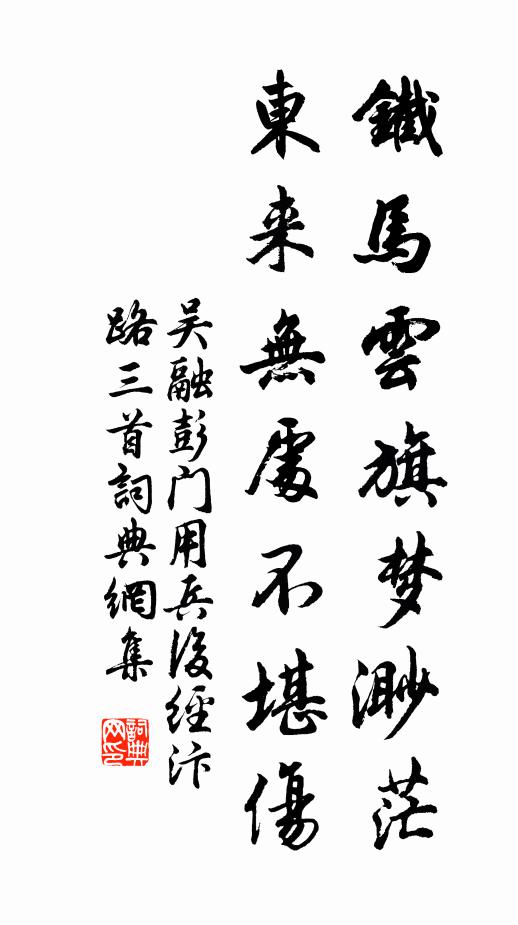 鐵馬雲旗梦渺茫
東来無處不堪傷
吴融彭门用兵後經汴
路三首詞典網集
詞典网印